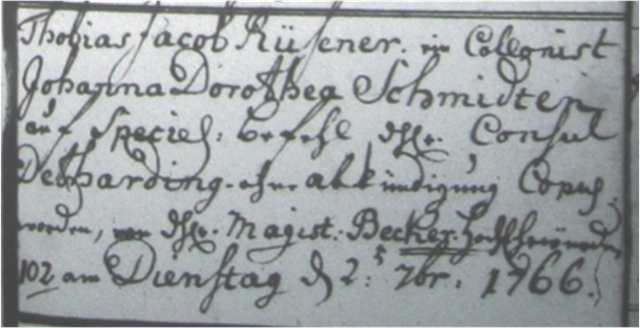 Thobias Jacob Rüsener. ein Collonist
Johanna Dorothea Schmidten
auf Speciel: befehl, Consul
Detharding. ohne abkündigung Copul.
worden, von Magist: Becker.
102 am Dienstag d 2: 7br. 1766.